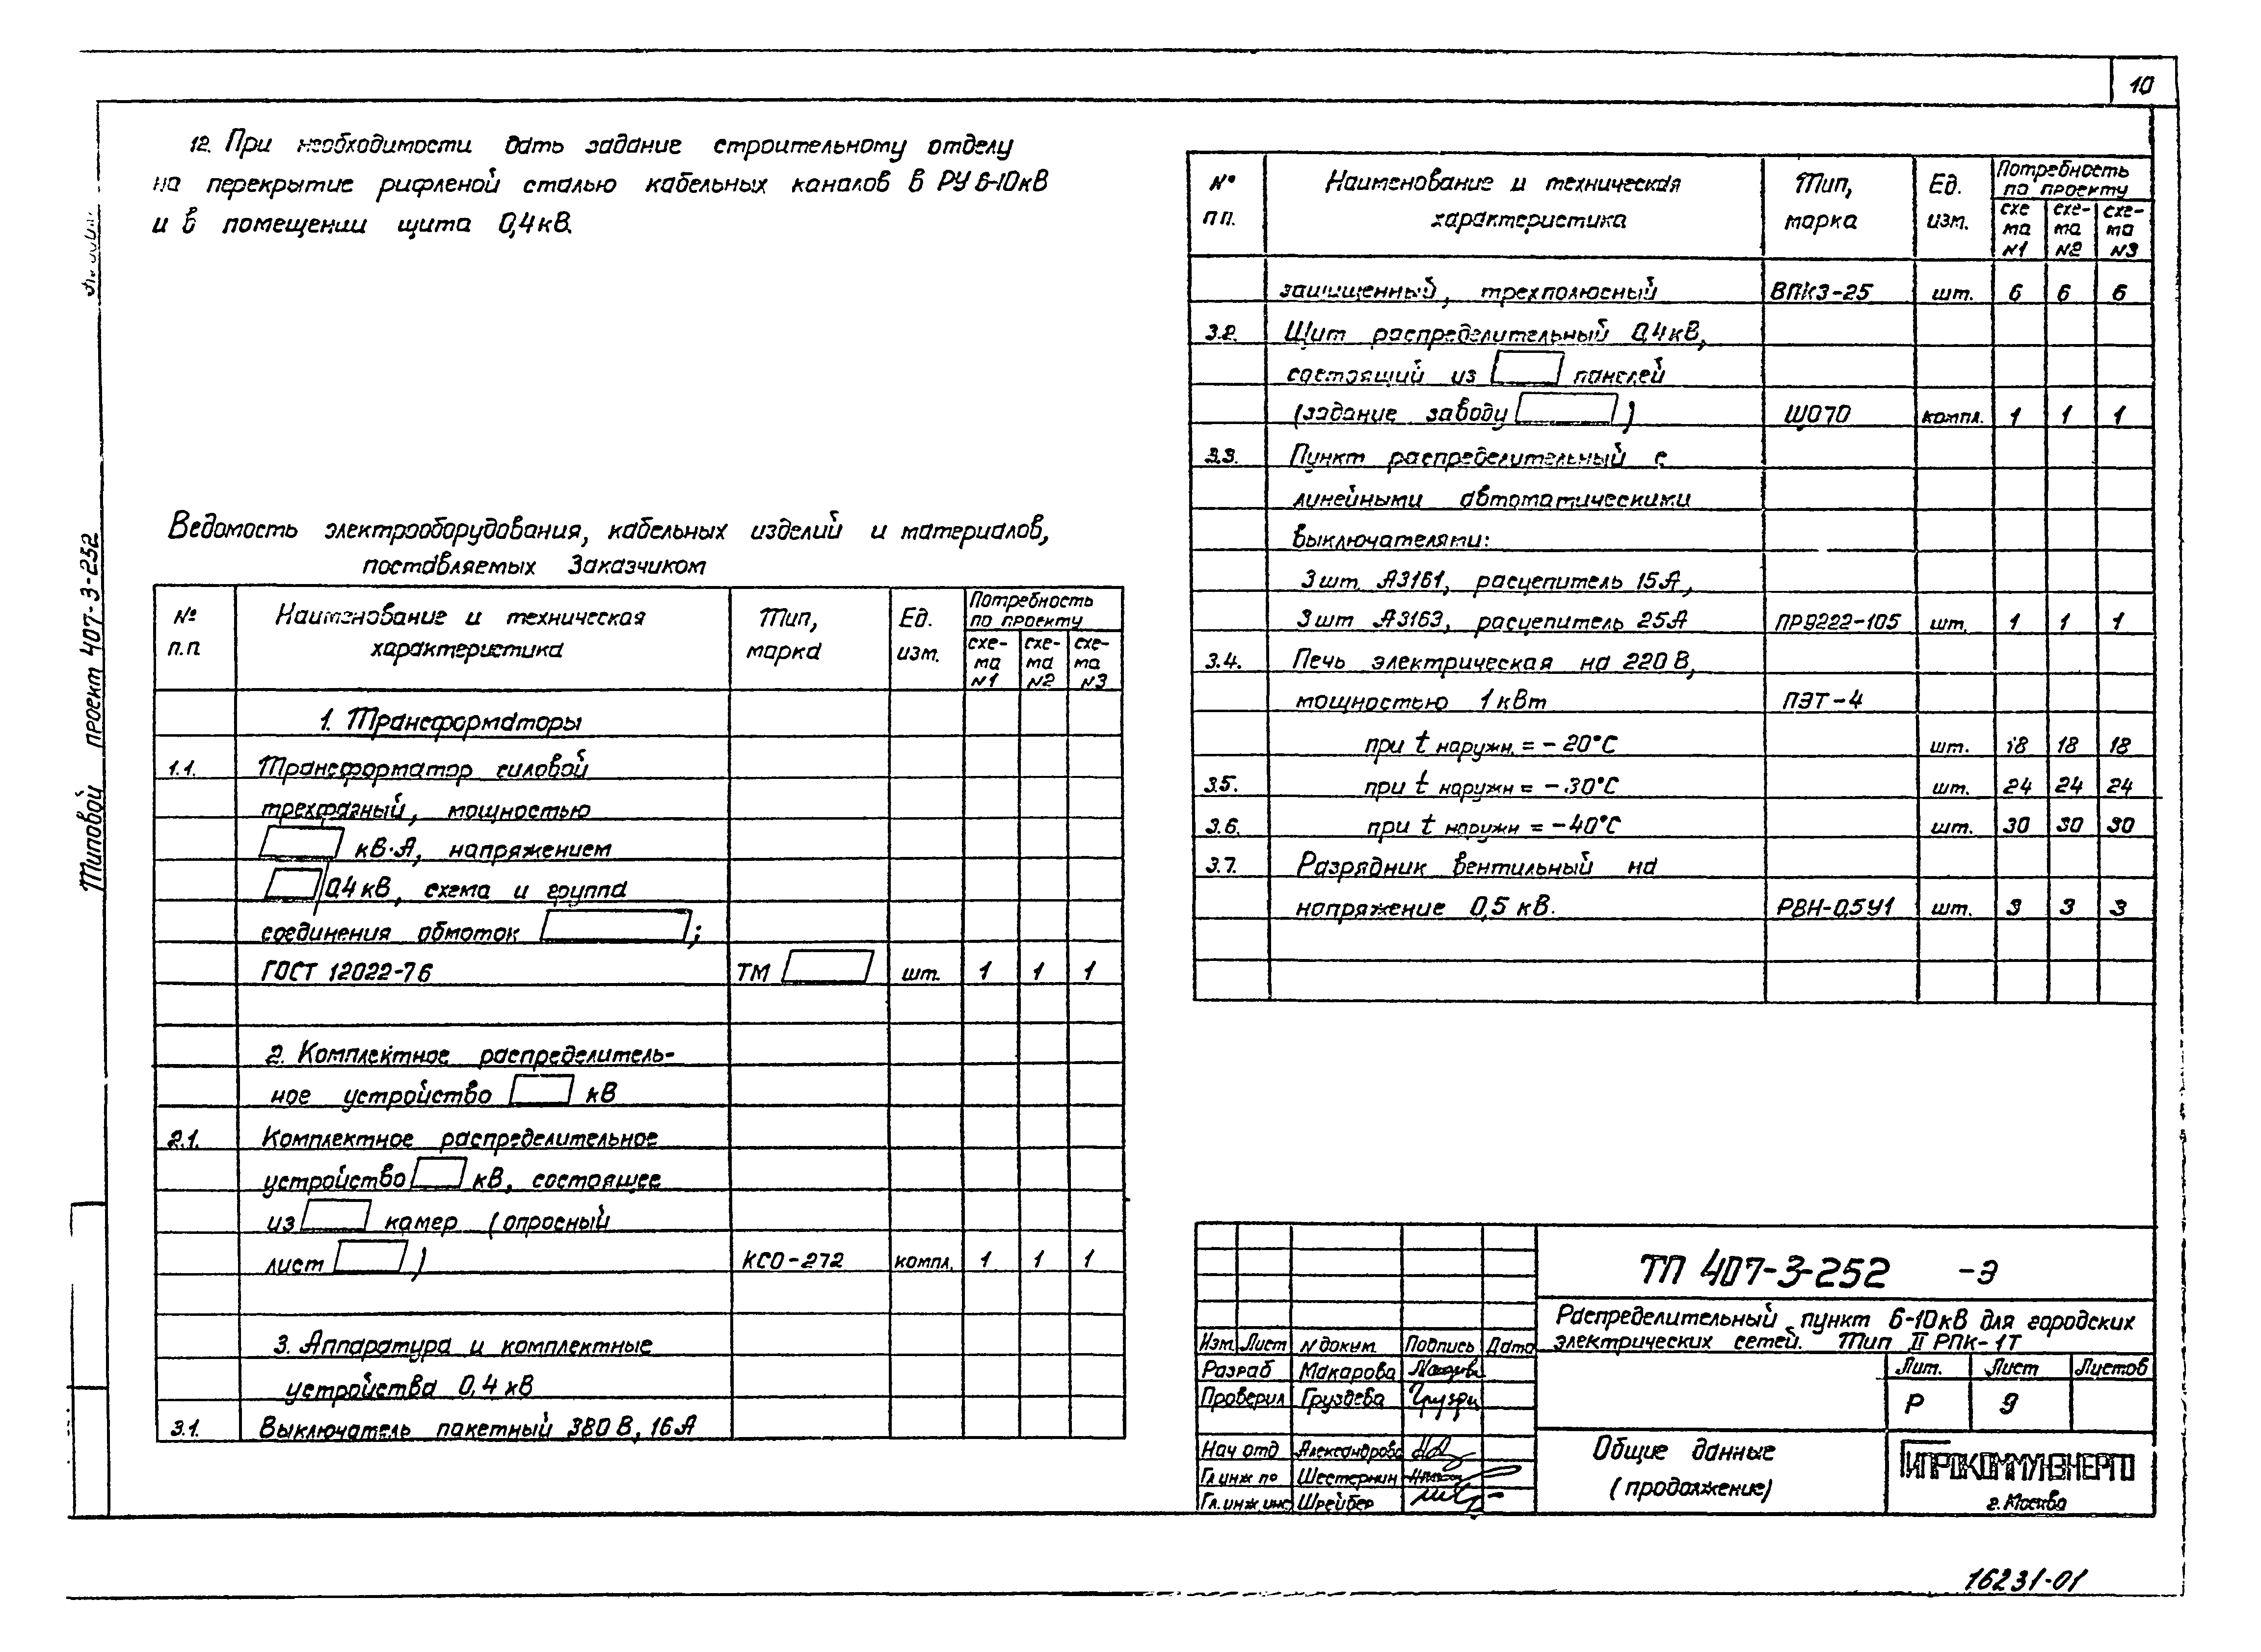 10
12. При необходимости дать задание строительному отделу
на перекрытие рифленой сталью кабельных каналов в РУ 6-10кВ
и в помещении щита 0,4кВ.
Типовой проект 407-3-252
Ведомость электрооборудования, кабельных изделий и материалов,
поставляемых Заказчиком
№ п.п Наименование и техническая характеристика Тип, марка Ед. изм. Потребность по проекту
схе-ма N1 схе-ма N2 схе-ма N3
1. Трансформаторы
1.1. Трансформатор силовой
трехфазный, мощностью
кВ·А, напряжением
/0,4кВ, схема и группа
соединения обмоток ;
ГОСТ 12022-76 ТМ шт. 1 1 1
2. Комплектное распределитель-
ное устройство кВ
2.1. Комплектное распределительное
устройство кВ, состоящее
из камер (опросный
лист ) КСО-272 компл. 1 1 1
3. Аппаратура и комплектные
устройства 0,4кВ
3.1. Выключатель пакетный 380В, 16А
№ пп. Наименование и техническая характеристика Тип, марка Ед. изм. Потребность по проекту
схе ма N1 схе-ма N2 схе-ма N3
защищенный, трехполюсный ВПК3-25 шт. 6 6 6
3.2. Щит распределительный 0,4кВ,
состоящий из панелей
(задание заводу ) ЩО70 компл. 1 1 1
3.3. Пункт распределительный с
линейными автоматическими
выключателями:
3шт. А3161, расцепитель 15А,
3шт А3163, расцепитель 25А ПР9222-105 шт. 1 1 1
3.4. Печь электрическая на 220В,
мощностью 1кВт ПЭТ-4
при t наружн. = -20°С шт. 18 18 18
3.5. при t наружн = -30°С шт. 24 24 24
3.6. при t наружн = -40°С шт. 30 30 30
3.7. Разрядник вентильный на
напряжение 0,5 кВ. РВН-0,5У1 шт. 3 3 3
ТП 407-3-252 -Э
Распределительный пункт 6-10кВ для городских
электрических сетей. Тип II РПК-1Т
Изм. Лист N докум. Подпись Дата
Разраб Макарова
Проверил Груздева
Нач отд Александрова
Гл инж по Шестернин
Гл. инж инс Шрейбер
Лит. Лист Листов
Р 9
Общие данные
(продолжение)
ГИПРОКОММУНЭНЕРГО
г. Москва
16231-01